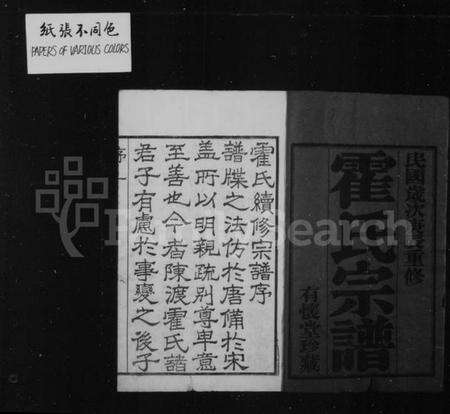 紙張不同色
PAPERS OF VARIOUS COLORS
重修
霍氏宗譜
有懷堂珍藏
霍氏續修宗譜序
譜牒之法仿於唐備於宋
蓋所以明親疏別尊卑意
至善也今者陳渡霍氏譜
君子有慮於事變之後子
序 一
Search